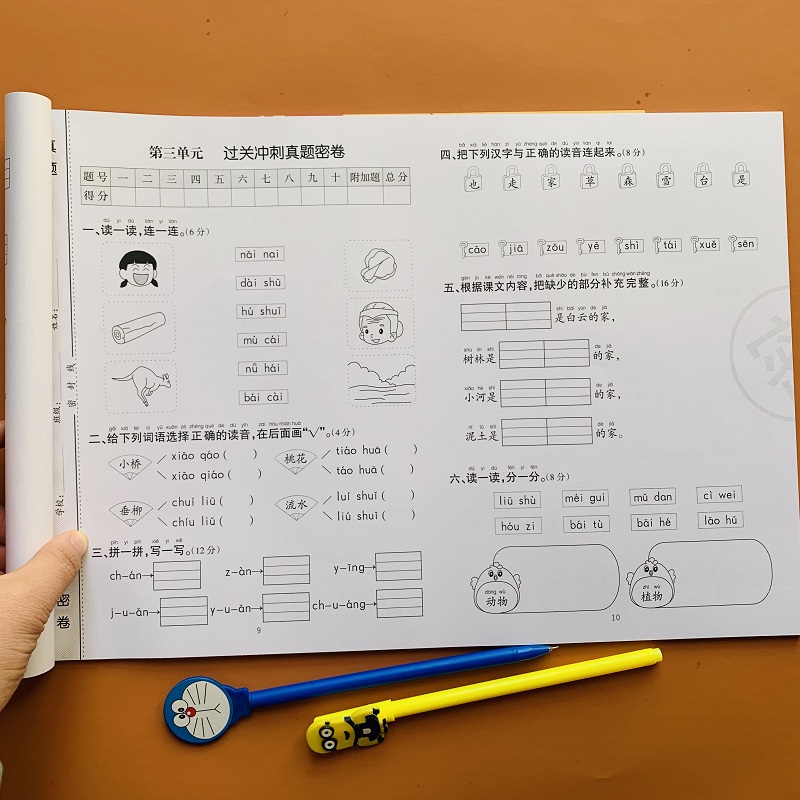 真题
密卷
学校：
班级：
姓名：
密 封 线
第三单元 过关冲刺真题密卷
题号 一 二 三 四 五 六 七 八 九 十 附加题 总分
得分
dú yi dú lián yi lián
一、读一读,连一连。(6分)
nǎi nai
dài shǔ
hú shuǐ
mù cái
nǚ hái
bái cài
gěi xià liè cí yǔ xuǎn zé zhèng què de dú yīn zài hòu miàn huà
二、给下列词语选择正确的读音,在后面画“√”。(4分)
小桥
xiǎo qáo ( )
xiǎo qiáo ( )
桃花
tiáo huā ( )
táo huā ( )
垂柳
chuí liǔ ( )
chíu liǔ ( )
流水
luí shuǐ ( )
liú shuǐ ( )
pīn yi pīn xiě yi xiě
三、拼一拼,写一写。(12分)
ch-án→ z-àn→ y-īng→
j-u-ān→ y-u-ān→ ch-u-áng→
9
bǎ xià liè hàn zì yǔ zhèng què de dú yīn lián qǐ lái
四、把下列汉字与正确的读音连起来。(8分)
也 走 家 草 森 雪 台 是
cǎo jiā zǒu yě shì tái xuě sēn
gēn jù kè wén nèi róng bǎ quē shǎo de bù fen bǔ chōng wán zhěng
五、根据课文内容,把缺少的部分补充完整。(16分)
shì bái yún de jiā
是白云的家,
shù lín shì de jiā
树林是 的家,
xiǎo hé shì de jiā
小河是 的家,
ní tǔ shì de jiā
泥土是 的家。
dú yi dú fēn yi fēn
六、读一读,分一分。(8分)
liǔ shù méi gui mǔ dan cì wei
hóu zi bái tù bǎi hé lǎo hǔ
dòng wù
动物
zhí wù
植物
10
密